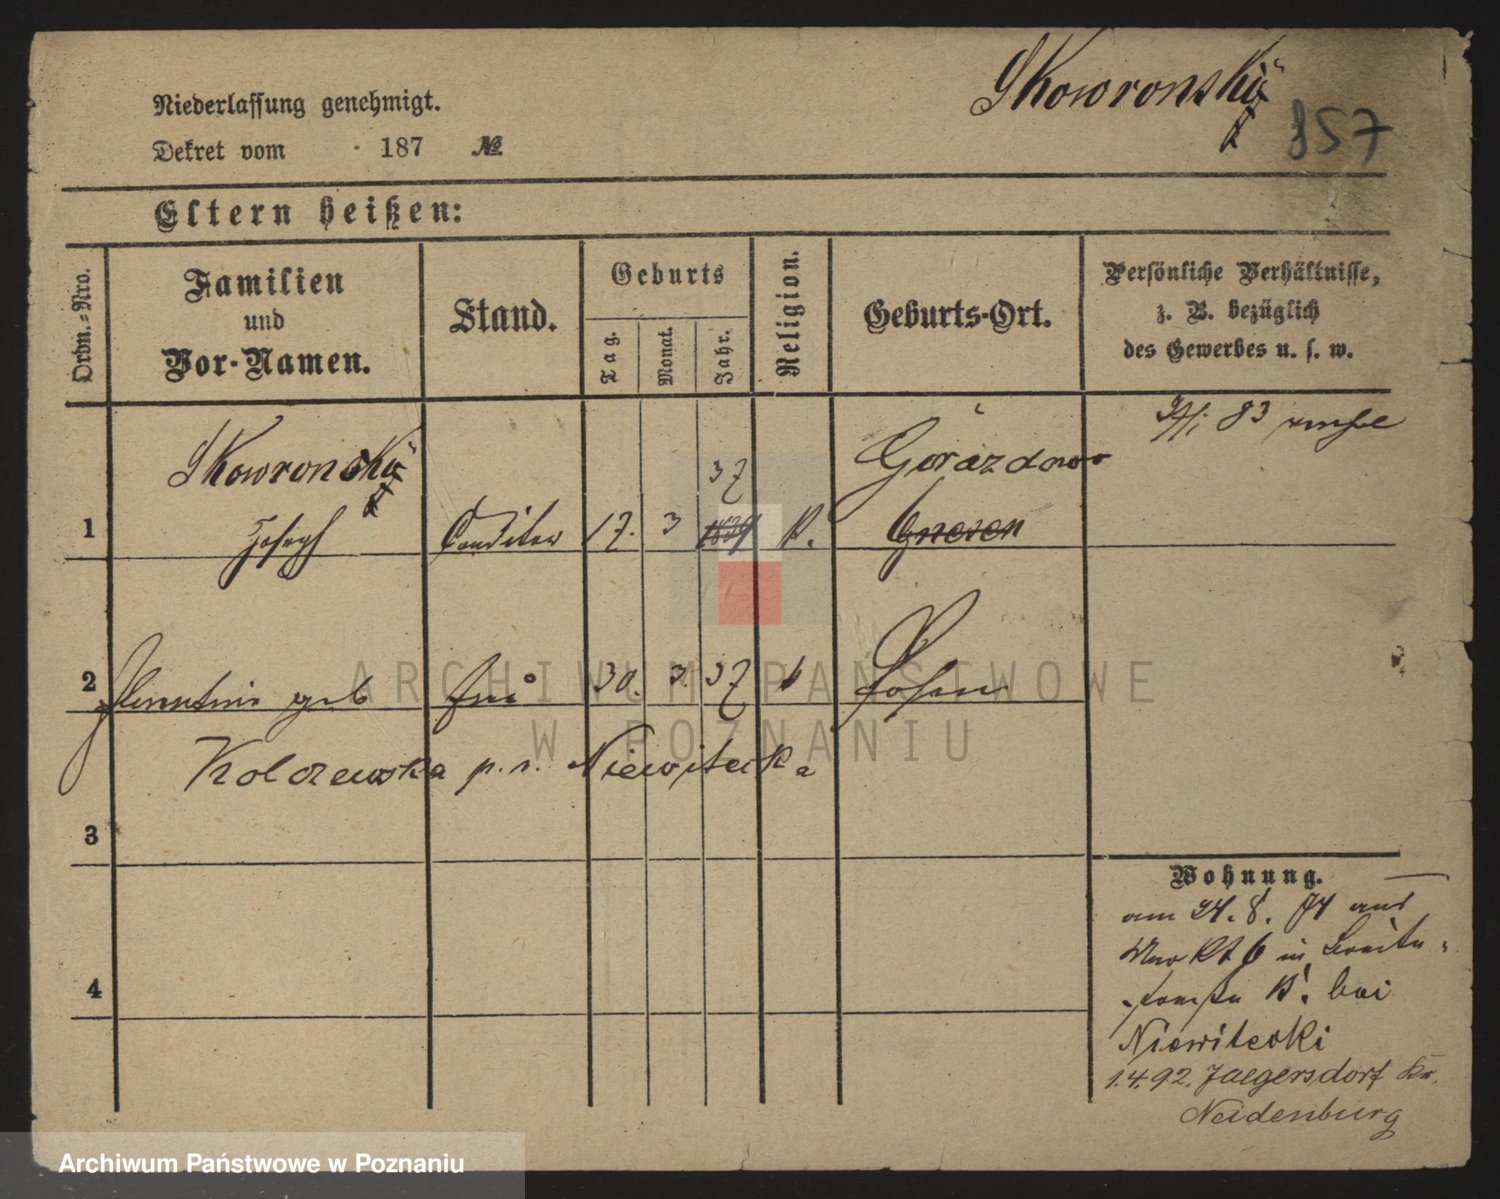 Skowronski
857
Niederlassung genehmigt.
Dekret vom 187 №
Eltern heißen:
Ordn.-Nro.
Familien
und
Vor-Namen.
Stand.
Geburts
Tag.
Monat.
Jahr.
Religion.
Geburts-Ort.
Persönliche Verhältnisse,
z. B. bezüglich
des Gewerbes u. s. w.
83
Skowronski
37
Gorazdowo
1 Joseph Conditor 17. 3 1839 k. Gnesen
2 geb Frau 30. 3. 37 k Posen
Kolczewska p. v. Niewitecka
3
4
Wohnung.
am 24. 8. 74 aus
Markt 6 in Breite-
straße 13. bei
Niewitecki
1.4.92. Jaegersdorf Kr.
Neidenburg
ARCHIWUM PAŃSTWOWE
W POZNANIU
Archiwum Państwowe w Poznaniu